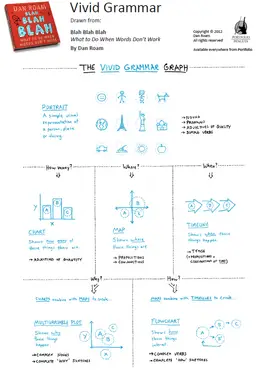 DAN ROAM
BLAH
BLAH
BLAH
WHAT TO DO WHEN
WORDS DON'T WORK
Vivid Grammar
Drawn from:
Blah Blah Blah
What to Do When Words Don't Work
By Dan Roam
Copyright © 2012
Dan Roam
All rights reserved
Available everywhere from Portfolio
THE VIVID GRAMMAR GRAPH
PORTRAIT
A simple visual
representation of
a person, place
or thing.
→ NOUNS
→ PRONOUNS
→ ADJECTIVES OF QUALITY
How many?
Where?
When?
A B C
CHART
Shows how many of
those things there are.
→ ADJECTIVES OF QUANTITY
MAP
Shows where
those things are.
→ PREPOSITIONS
→ CONJUNCTIONS
TIMELINE
Shows when those
things happen.
→ TENSE
Why?
How?
CHARTS combine with MAPS to create...
MAPS combine with TIMELINES to create...
MULTIVARIABLE PLOT
Shows why
those things
happen
FLOWCHART
Shows how
those things
happen
→ COMPLEX VERBS
→ COMPLETE "WHY" SENTENCES
→ COMPLETE "HOW" SENTENCES